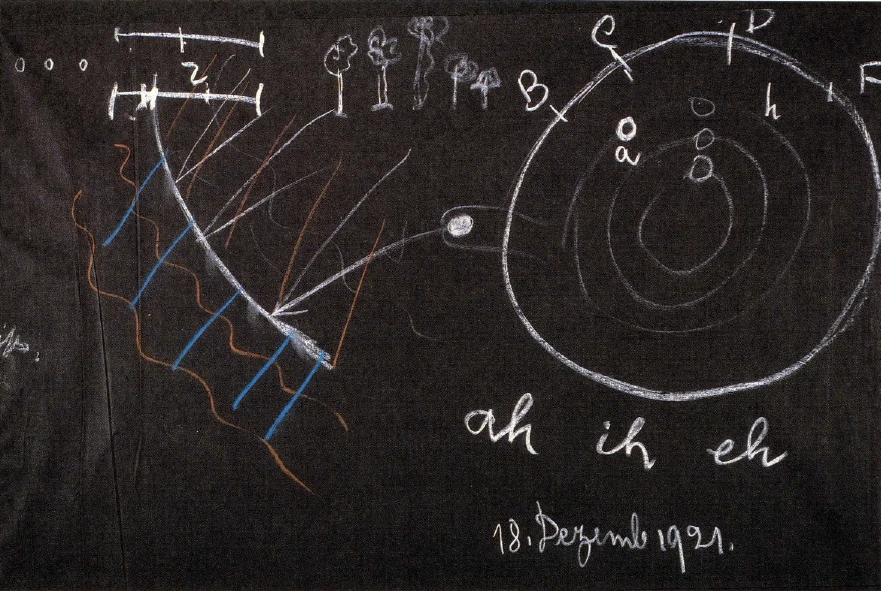 C D
2
B h F
a
ah ih eh
18. Dezemb 1921.